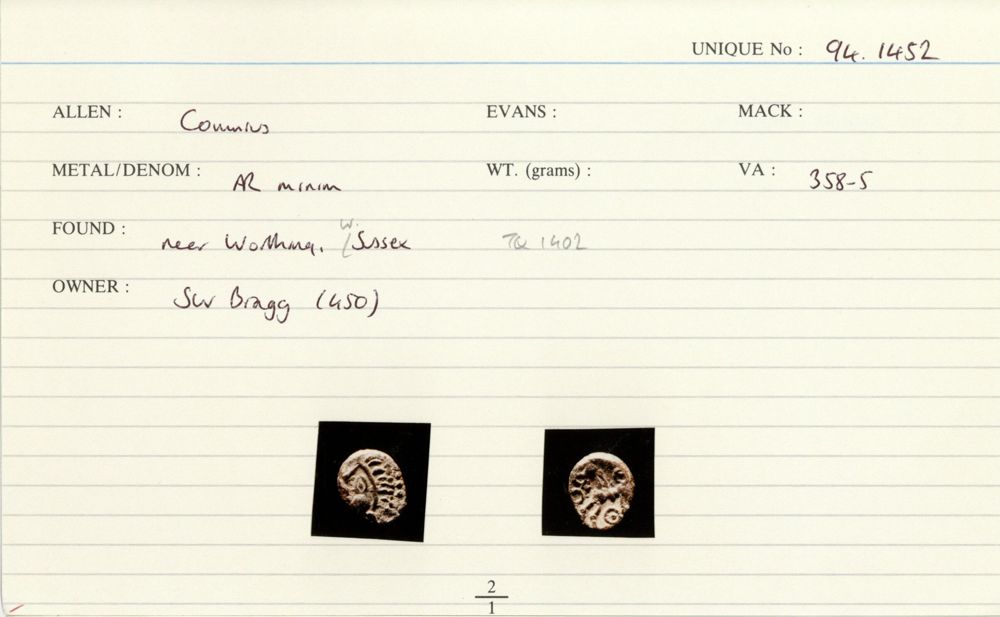 UNIQUE No : 94.1452
ALLEN : Commius EVANS : MACK :
METAL/DENOM : AR minim WT. (grams) : VA : 358-5
FOUND : near Worthing, W. Sussex TQ 1402
OWNER : SW Bragg (450)
2
1